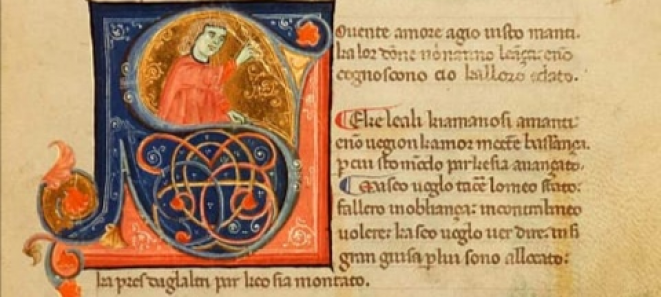 Ovente amore agio visto manti.
ka lor dōne nō nanno leāça: enō
cognoscono cio kalloro edato.
Eke leali kiamanosi amanti
enō vegion kamor mette bassança.
p cui sto modo par ke sia avançato.
Ma seo voglo tacē lomeo stato:
fallero in obliança: incontinēte
volere: ka seo voglo ver dire. insi
gran guisa plui sono allocato:
ka pres duglaltri par keo sia montato.